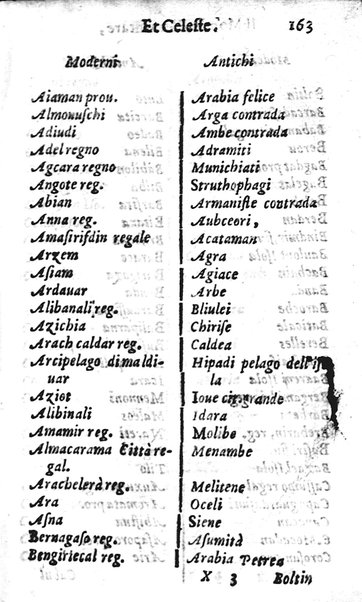 Et Celeste. 163
Moderni Antichi
Aiaman prou. Arabia felice
Almouuschi Arga contrada
Adiudi Ambe contrada
Adel regno Adramiti
Agcara regno Munichiati
Angote reg. Struthophagi
Abian Armaniste contrada
Anna reg. Aubceori,
Amasirifdin regale Acataman
Arzem Agra
Asiam Agiace
Ardauar Arbe
Alibanali reg. Bliulei
Azichia Chirise
Arach caldar reg. Caldea
Arcipelago di maldi- Hipadi pelago dell'is
uar la
Aziot Ioue grande
Alibinali Idara
Amamir reg. Molibe
Almacarama Città re- Menambe
gal.
Arachelerà reg. Melitene
Ara Oceli
Asna Siene
Bernagaso reg. Asumità
Bengiriecal reg. Arabia Petrea
X 3 Boltin